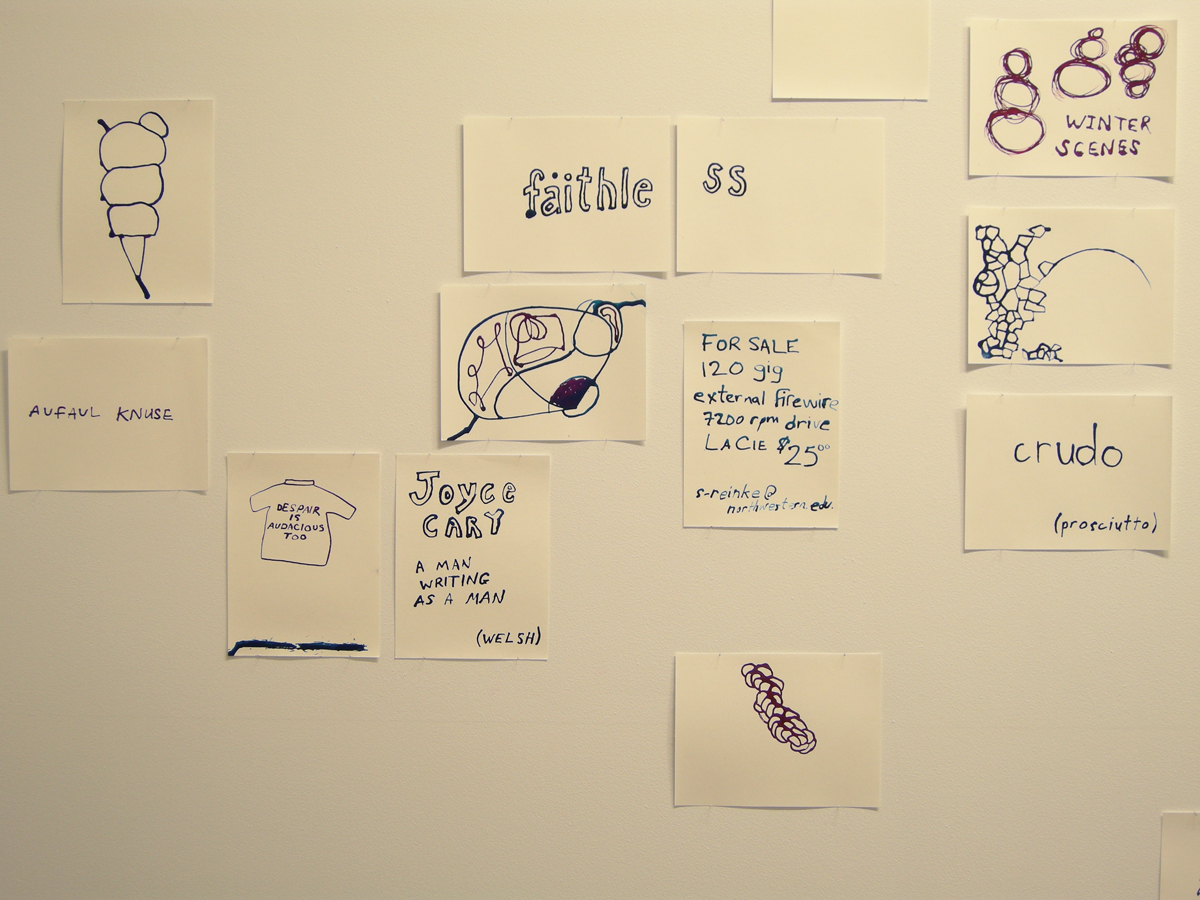 WINTER
SCENES
faithle
ss
AUFAUL KNUSE
FOR SALE
120 gig
external firewire
7200 rpm drive
LACIE $25⁰⁰
s-reinke@
northwestern.edu.
crudo
(prosciutto)
DESPAIR
IS
AUDACIOUS
TOO
Joyce
CARY
A MAN
WRITING
AS A MAN
(WELSH)